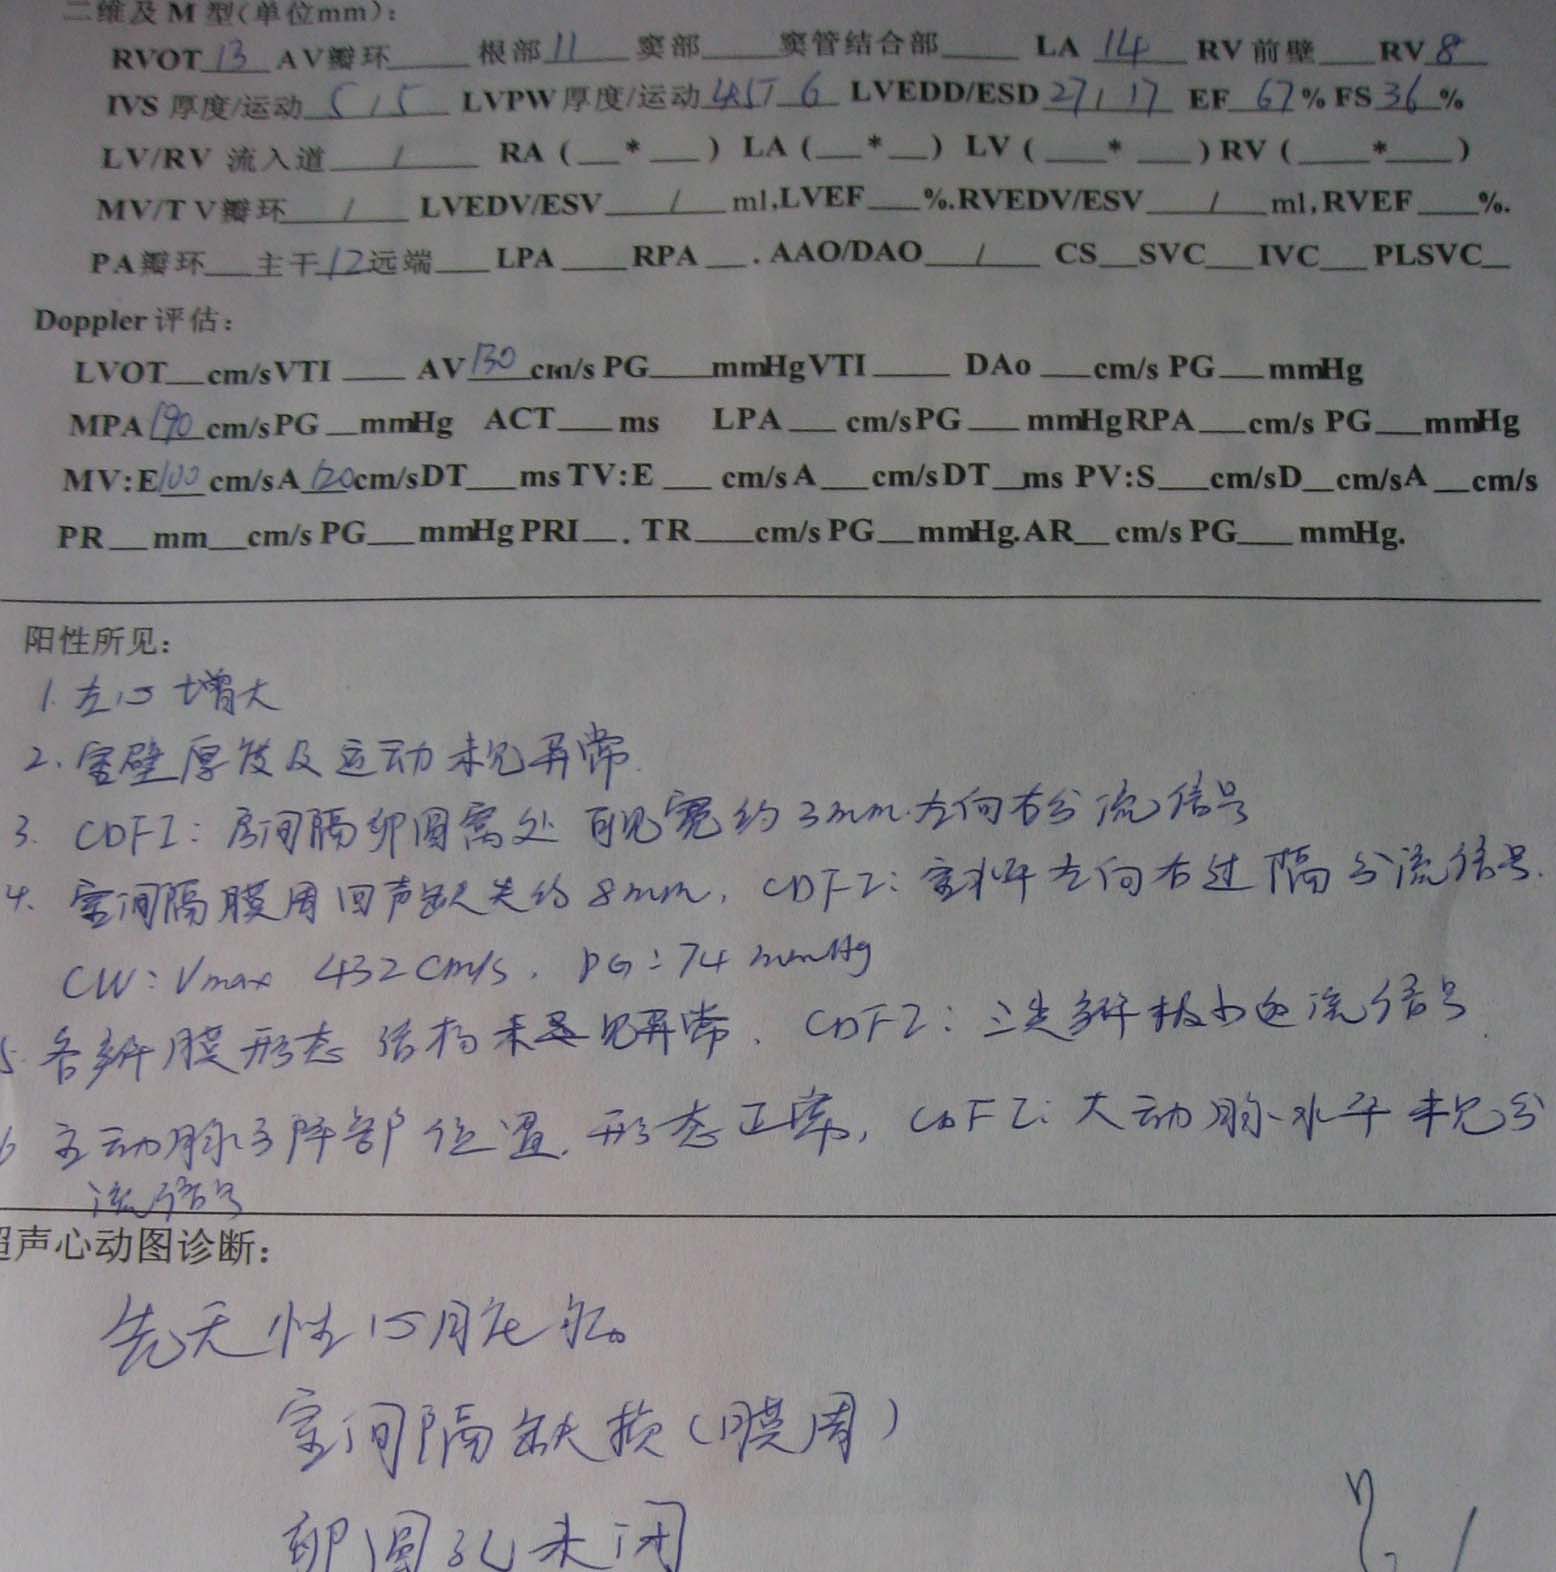 二维及 M 型(单位mm):
RVOT 13 AV瓣环____ 根部 11 窦部____ 窦管结合部____ LA 14 RV 前壁___ RV 8
IVS 厚度/运动 5 / 5 LVPW厚度/运动 4.5 / 6 LVEDD/ESD 27 / 17 EF 67% FS 36%
LV/RV 流入道____/____ RA (___*___) LA (___*__) LV (____*____) RV (____*____)
MV/TV瓣环___/___ LVEDV/ESV____/___ml,LVEF___%.RVEDV/ESV____/___ml,RVEF____%.
PA瓣环___主干 12 远端___ LPA____ RPA___. AAO/DAO___/___ CS__SVC___IVC___PLSVC__
Doppler 评估:
LVOT___cm/sVTI ____ AV 130 cm/s PG____mmHgVTI____ DAo ___cm/s PG___mmHg
MPA 190 cm/sPG __mmHg ACT____ms LPA___ cm/sPG____ mmHgRPA___cm/s PG___mmHg
MV:E 100 cm/sA 120 cm/sDT___ms TV:E ___ cm/sA___cm/sDT__ms PV:S___cm/sD__cm/sA__cm/s
PR__mm__cm/s PG___mmHg PRI__. TR____cm/s PG__mmHg.AR__cm/s PG___mmHg.
阳性所见:
1. 左心增大
2. 室壁厚度及运动未见异常.
3. CDFI: 房间隔卵圆窝处可见宽约3mm左向右分流信号
4. 室间隔膜周回声缺失约8mm, CDFI: 室水平左向右过隔分流信号.
CW: Vmax 432cm/s, PG: 74mmHg
5. 各瓣膜形态结构未见异常, CDFI: 三尖瓣极少返流信号.
6 主动脉弓降部位置, 形态正常, CDFI: 大动脉水平未见分
流信号
超声心动图诊断:
先天性心脏病
室间隔缺损(膜周)
卵圆孔未闭